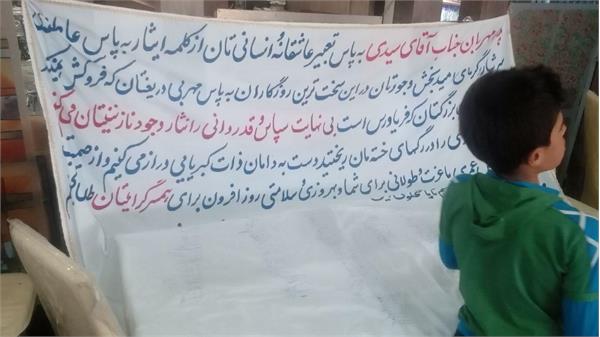 مهربان جناب آقای سیدی به پاس تعبیر عاشقانهٔ انسانی تان از کلمه ایثار به پاس
گرمای امیدبخش وجودتان در این سخت ترین روزگاران به پاس مهر بی دریغتان که فروکش
بزرگتان که فریادرس است بی نهایت سپاس و قدردانی را نثار وجود نازنینتان می
را در رگهای خسته مان ریختید دست به دامان ذات کبریایی دراز می کنیم و از
باعزت و طولانی برای شما و بهروزی و سلامتی روز افزون برای همسر گرامیتان